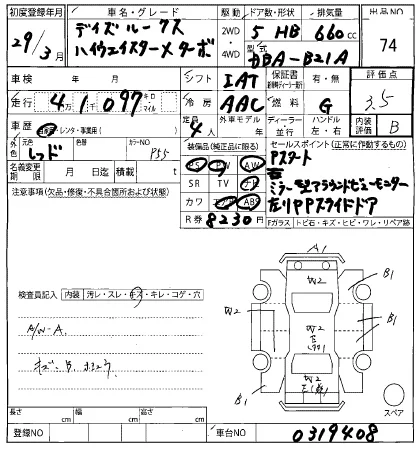 初度登録年月 車名・グレード 駆動 ドア数・形状 排気量 出品NO
29/3月 デイズルークス 2WD 5 HB 660cc 74
ハイウェイスターメターボ 4WD 型式 DBA-B21A
車検 年 月 シフト IAT 保証書 有・無 評価点
走行 4万1097 キロ マイル 冷房 AAC 燃料 G 3.5
車歴 自家用 レンタ・事業用( ) 定員 4人 外車モデル 年 ディーラー 並行 ハンドル 左・右 内装 B
外色 元色 カラーNO 装備品(純正品に限る) セールスポイント(正常に作動するもの)
レッド P55 PS PW AW Pスタート
名義変更期限 月 日 迄 積載 t SR TV ナビ
注意事項(欠品・修復・不具合箇所および状態) カワ エアB ABS 左リアPスライドドア
R券 8230円 Fガラス トビ石・キズ・ヒビ・ワレ・リペア跡
検査員記入 内装 汚レ・スレ・キズ・キレ・コゲ・穴
A/W-A.
キズ・B.
A1
W2
B1
W2
B1
W2
B1
W2
B1
スペア
長さ cm 幅 cm 高さ cm
登録NO 車台NO 0319408